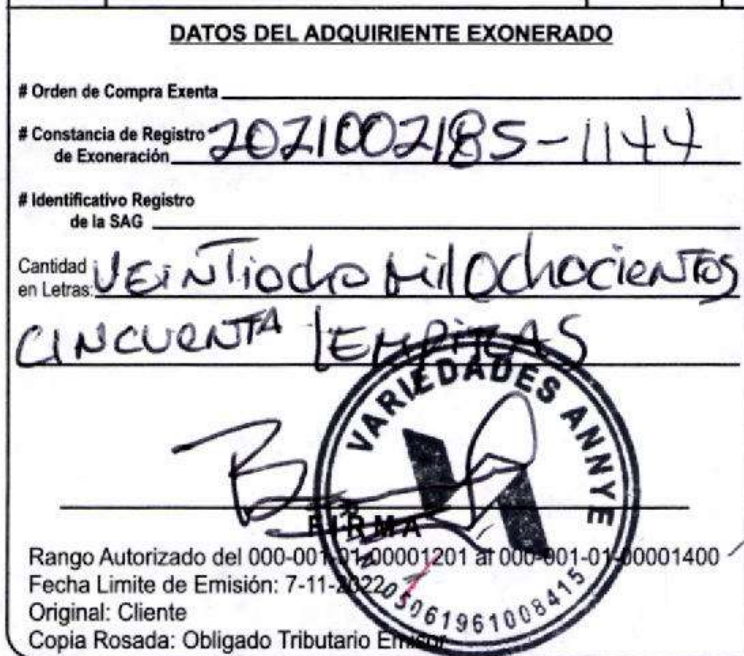 DATOS DEL ADQUIRIENTE EXONERADO
# Orden de Compra Exenta
# Constancia de Registro de Exoneración 2021002185-1144
# Identificativo Registro
de la SAG
Cantidad en Letras: VEINTIocho Mil Ochocientos
CINCUENTA LEMPIRAS
VARIEDADES ANNYE
FIRMA
Rango Autorizado del 000-001-01-00001201 al 000-001-01-00001400
Fecha Limite de Emisión: 7-11-2022
Original: Cliente
Copia Rosada: Obligado Tributario Emisor